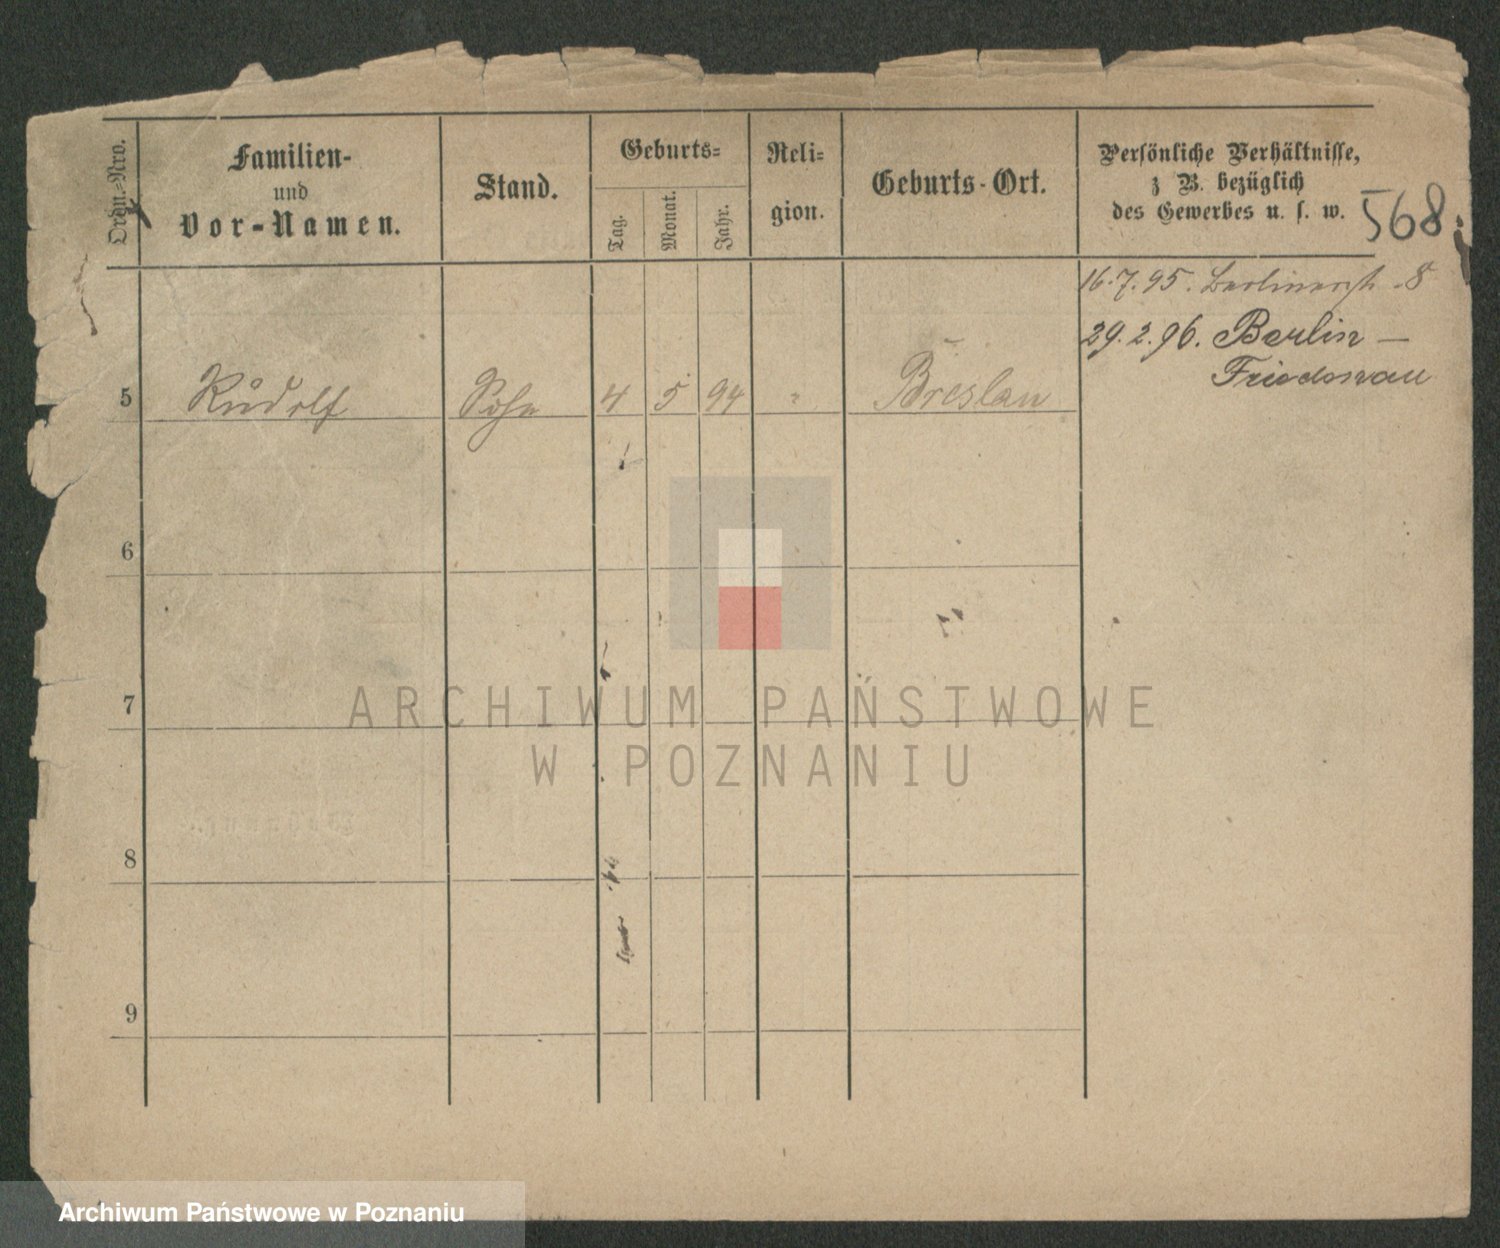 Ordn.-Nro.
Familien-
und
Vor-Namen.
Stand.
Geburts-
Tag.
Monat.
Jahr.
Reli-
gion.
Geburts-Ort.
Persönliche Verhältnisse,
z B. bezüglich
des Gewerbes u. s. w.
568.
16.7.95. Berlinerstr. 8
29.2.96. Berlin —
Friedenau
5 Rudolf Sohn 4 5 94 " Breslau
6
7
8
9
ARCHIWUM PAŃSTWOWE
W POZNANIU
Archiwum Państwowe w Poznaniu